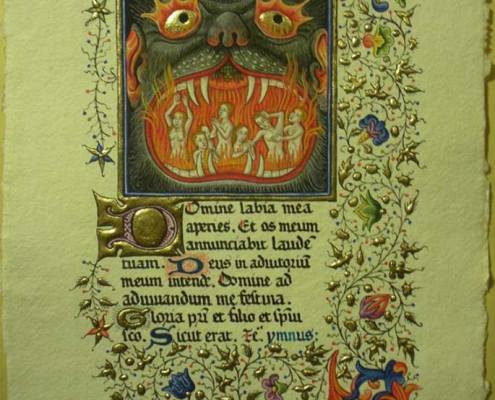 Domine labia mea
aperies. Et os meum
annunciabit laude
tuam. Deus in adiutoriũ
meum intende. Domine ad
adiuvandum me festina.
Gloria pri et filio et spiui
sco. Sicut erat. Ze. ymnus: